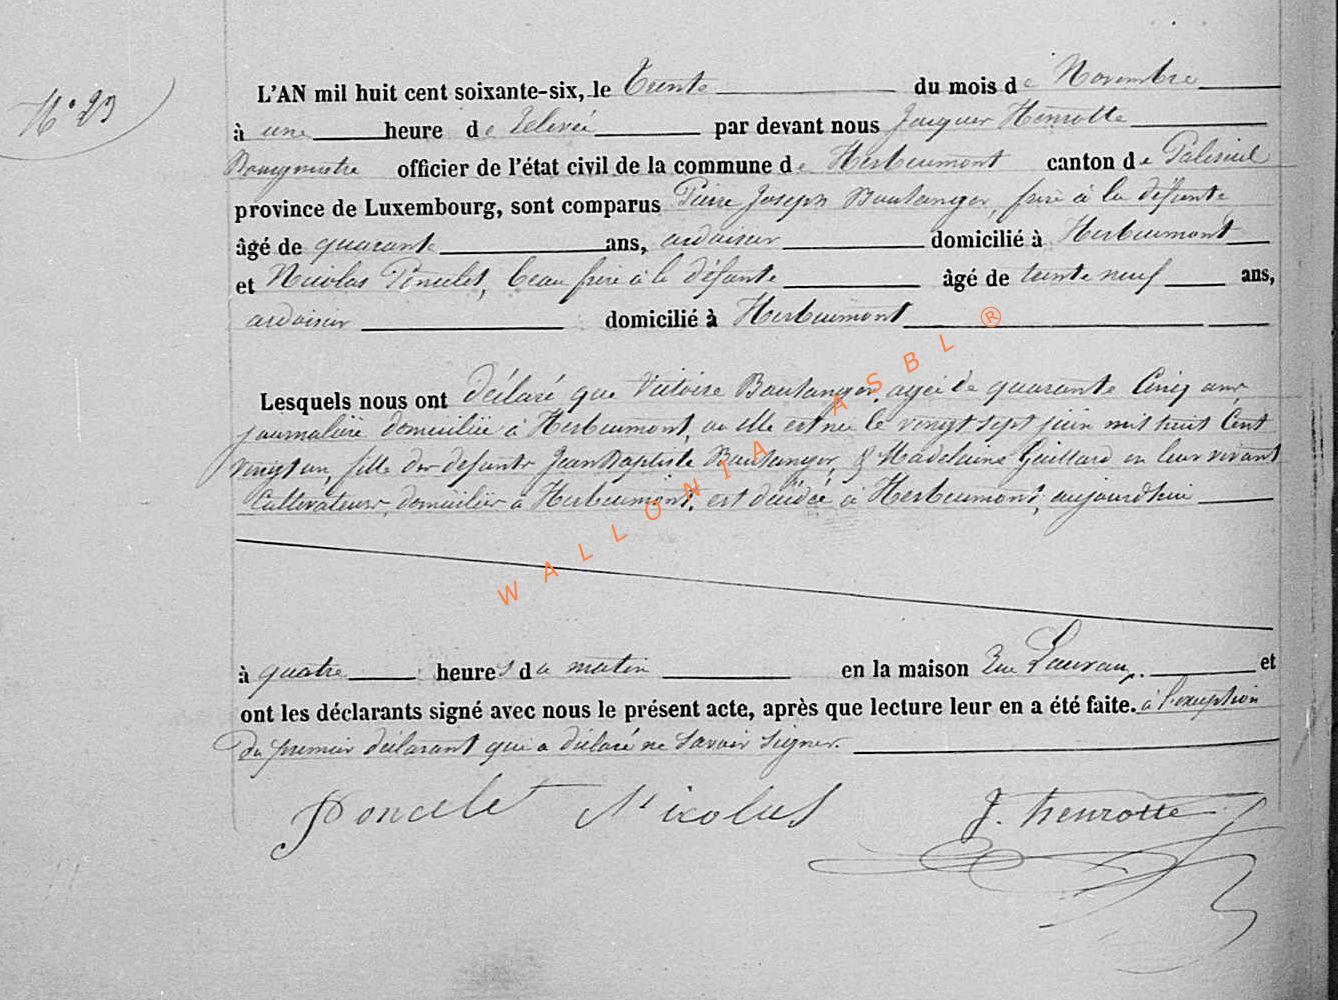 N° 23
L'AN mil huit cent soixante-six, le Trente du mois de Novembre
à une heure de Relevée par devant nous Jacques Henrotte
Bourgmestre officier de l'état civil de la commune de Herbeumont canton de Paliseul
province de Luxembourg, sont comparus Pierre Joseph Boulanger, frère à la défunte
âgé de quarante ans, ardoisier domicilié à Herbeumont
et Nicolas Poncelet, beau frère à la défunte âgé de trente neuf ans,
ardoisier domicilié à Herbeumont
Lesquels nous ont déclaré que Victoire Boulanger, agée de quarante Cinq ans,
journalière domiciliée à Herbeumont, où elle est née le vingt sept juin mil huit Cent
vingt un, fille des defunts Jean Baptiste Boulanger, & Madelaine Guillard en leur vivant
Cultivateurs, domiciliés à Herbeumont, est décédée à Herbeumont, aujourd'hui
à quatre heures du matin en la maison Rue et
ont les déclarants signé avec nous le présent acte, après que lecture leur en a été faite. à l'exception
du premier déclarant qui a déclaré ne savoir signer.
Poncelet Nicolas J. henrotte
WALLONIA ASBL ®